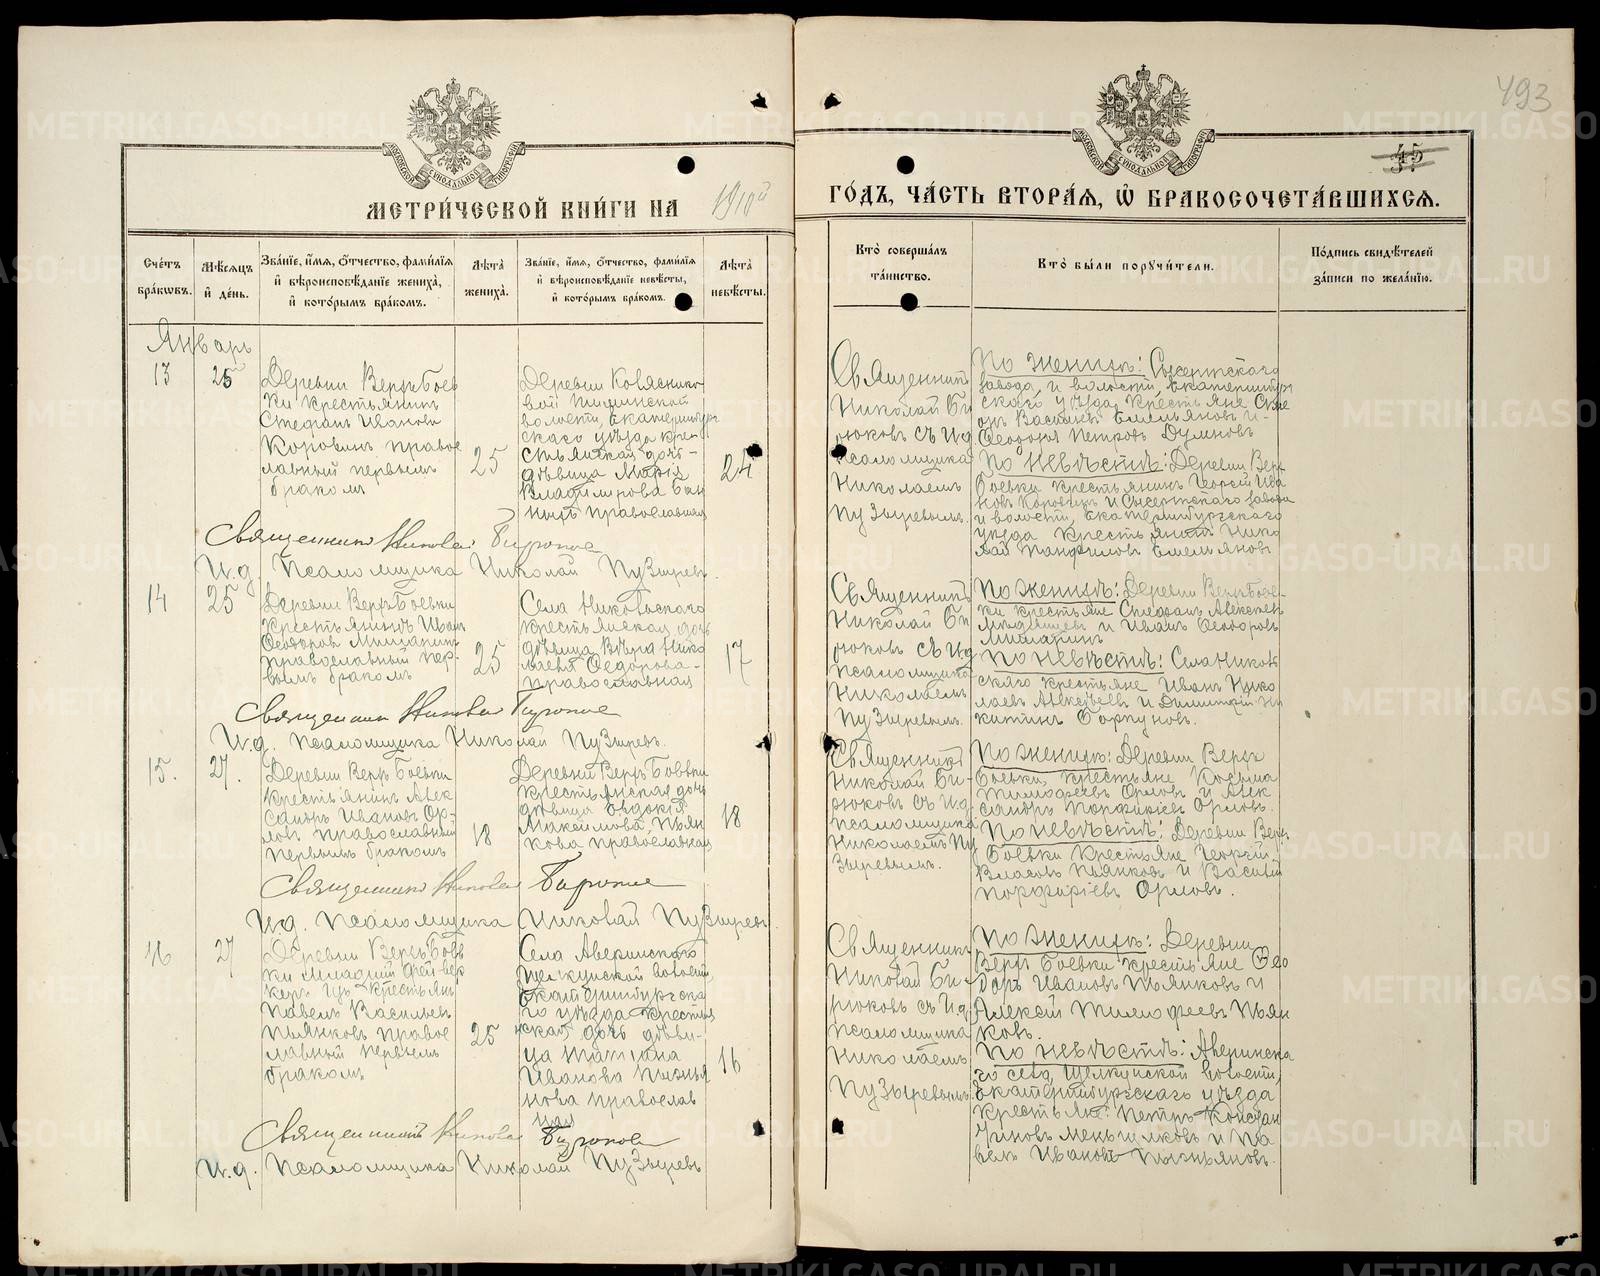 493
45
МЕТРИЧЕСКОЙ КНИГИ НА 1910й
ГОДЪ, ЧАСТЬ ВТОРАЯ, Ѡ БРАКОСОЧЕТАВШИХСЯ.
Счетъ браковъ.
Мѣсяцъ и день.
Званіе, имя, отчество, фамилія и вѣроисповѣданіе жениха, и которымъ бракомъ.
Лѣта жениха.
Званіе, имя, отчество, фамилія и вѣроисповѣданіе невѣсты, и которымъ бракомъ.
Лѣта невѣсты.
Кто совершалъ таинство.
Кто были поручители.
Подпись свидѣтелей записи по желанію.
Январь
13
25
Деревни Верхъ Боев
ки Крестьянинъ
Стефанъ Иванов
Коровинъ право
славный первымъ
бракомъ
25
Деревни Колясников
вой
волости, Екатеринбур
скаго уѣзда кре-
стьянская дочь-
дѣвица Марія
Владимирова
православная
24
Священникъ
Николай Би
рюковъ съ И.д
псаломщика
Николаемъ
Пузыревымъ.
По женихѣ: Сысертскаго
завода, и волости, Екатеринбур
скаго уѣзда, Крестьяне
Василій Емельяновъ и-
Ѳеодоръ Петровъ Думновъ
По невѣстѣ: Деревни Верх
Боевки Крестьянинъ Георгій Ива
новъ Коровинъ и Сысертскаго завода
и волости, Екатеринбургскаго
уѣзда Крестьянинъ Нико
лай Панфиловъ Емельяновъ
Священникъ Николай Бирюков
И.д. Псаломщика Николай Пузырев.
14
25
Деревни Верхъ Боевки
Крестьянинъ Иван
Ѳеодоров
православный пер-
вымъ бракомъ
25
Села Никольскаго
крестьянская дочь
дѣвица Вѣра Нико
лаева Ѳедорова-
православная
17
Священникъ
Николай Би
рюковъ съ И.д
псаломщика
Николаемъ
Пузыревымъ.
По женихѣ: Деревни Верхъ Боев-
ки Крестьяне Стефанъ Алексѣев
и Иванъ Ѳеодоровъ
По невѣстѣ: Села Николь
скаго Крестьяне Иванъ Нико
лаевъ Алексѣевъ и Димитрій Ни
китинъ
Священникъ Николай Бирюков
И.д. Псаломщика Николай Пузырев.
15.
27.
Деревни Верхъ Боевки
крестьянинъ Алек
сандръ Ивановъ Ор-
ловъ православный
первымъ бракомъ
18
Деревни Верхъ Боевки
Крестьянская дочь
дѣвица Евдокія
Максимова Пьян
кова православная
18
Священникъ
Николай Би-
рюковъ съ И.д
псаломщика
Николаемъ Пу
зыревымъ.
По женихѣ: Деревни Верхъ
Боевки, Крестьяне Козьма
Тимофеевъ Орловъ и Алек
сандръ Порфиріевъ Орловъ.
По невѣстѣ: Деревни Верх
Боевки Крестьяне Георгій
Власовъ Пьянковъ и Василій
Порфиріевъ Орловъ.
Священникъ Николай Бирюков
И.д. Псаломщика Николай Пузырев.
16
27
Деревни Верхъ Боев
ки младшій фейвер
керъ изъ крестьянъ
Павелъ Васильев
Пьянковъ право
славный первымъ
бракомъ
25
Села Аверинскаго
Щелкунской волости,
Екатеринбургска
го уѣзда Крестьян
ская дочь дѣви-
ца Татіана
Иванова Пьянья
нова православ
ная
16
Священникъ
Николай Би-
рюковъ съ И.д
псаломщика
Николаемъ
Пузыревымъ.
По женихѣ: Деревни
Верхъ Боевки Крестьяне Ѳео
доръ Ивановъ Пьянковъ и
Алексій Тимофеевъ Пьян
ковъ.
По невѣстѣ: Аверинска
го села, Щелкунской волости,
Екатеринбургскаго уѣзда
Крестьяне: Петръ Констан
тиновъ Меньшиковъ и Па
велъ Ивановъ
Священникъ Николай Бирюков
И.д. Псаломщика Николай Пузыревъ
METRIKI.GASO-URAL.RU